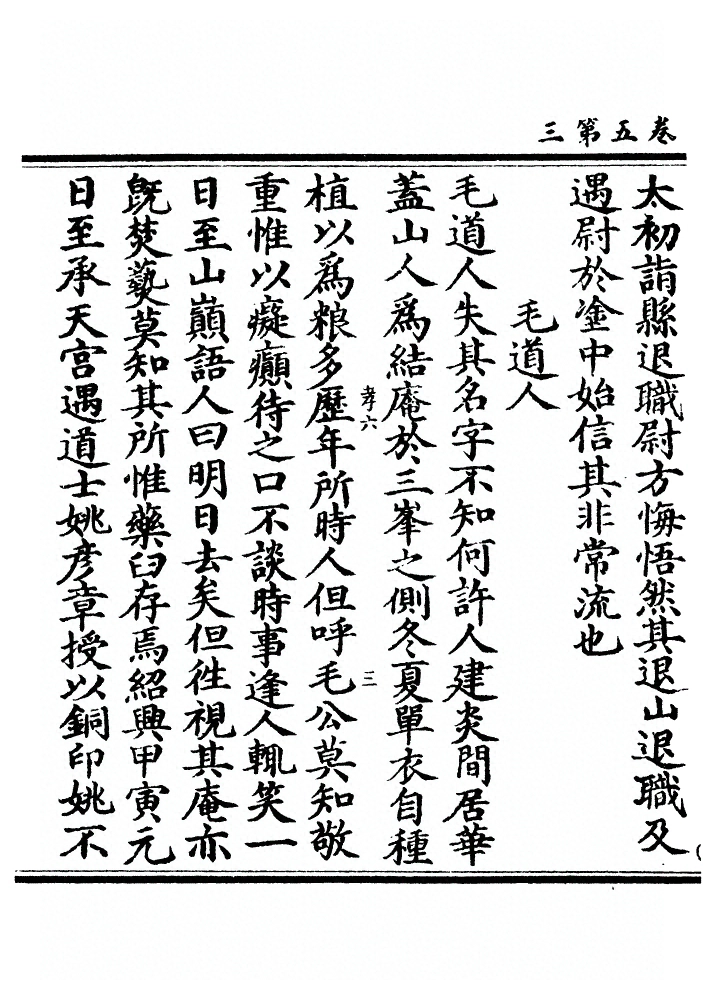 三第五卷
太初詣縣退職尉方悔悟然其退山退職及
遇尉於途中始信其非常流也
毛道人
毛道人失其名字不知何許人建炎間居華
蓋山人爲結庵於三峯之側冬夏單衣自種
孝六
三
植以爲粮多歷年所時人但呼毛公莫知敬
重惟以癡癲待之口不談時事逢人輒笑一
日至山巔語人曰明日去矣但徃視其庵亦
旣焚爇莫知其所惟藥臼存焉紹興甲寅元
日至承天宮遇道士姚彥章授以銅印姚不